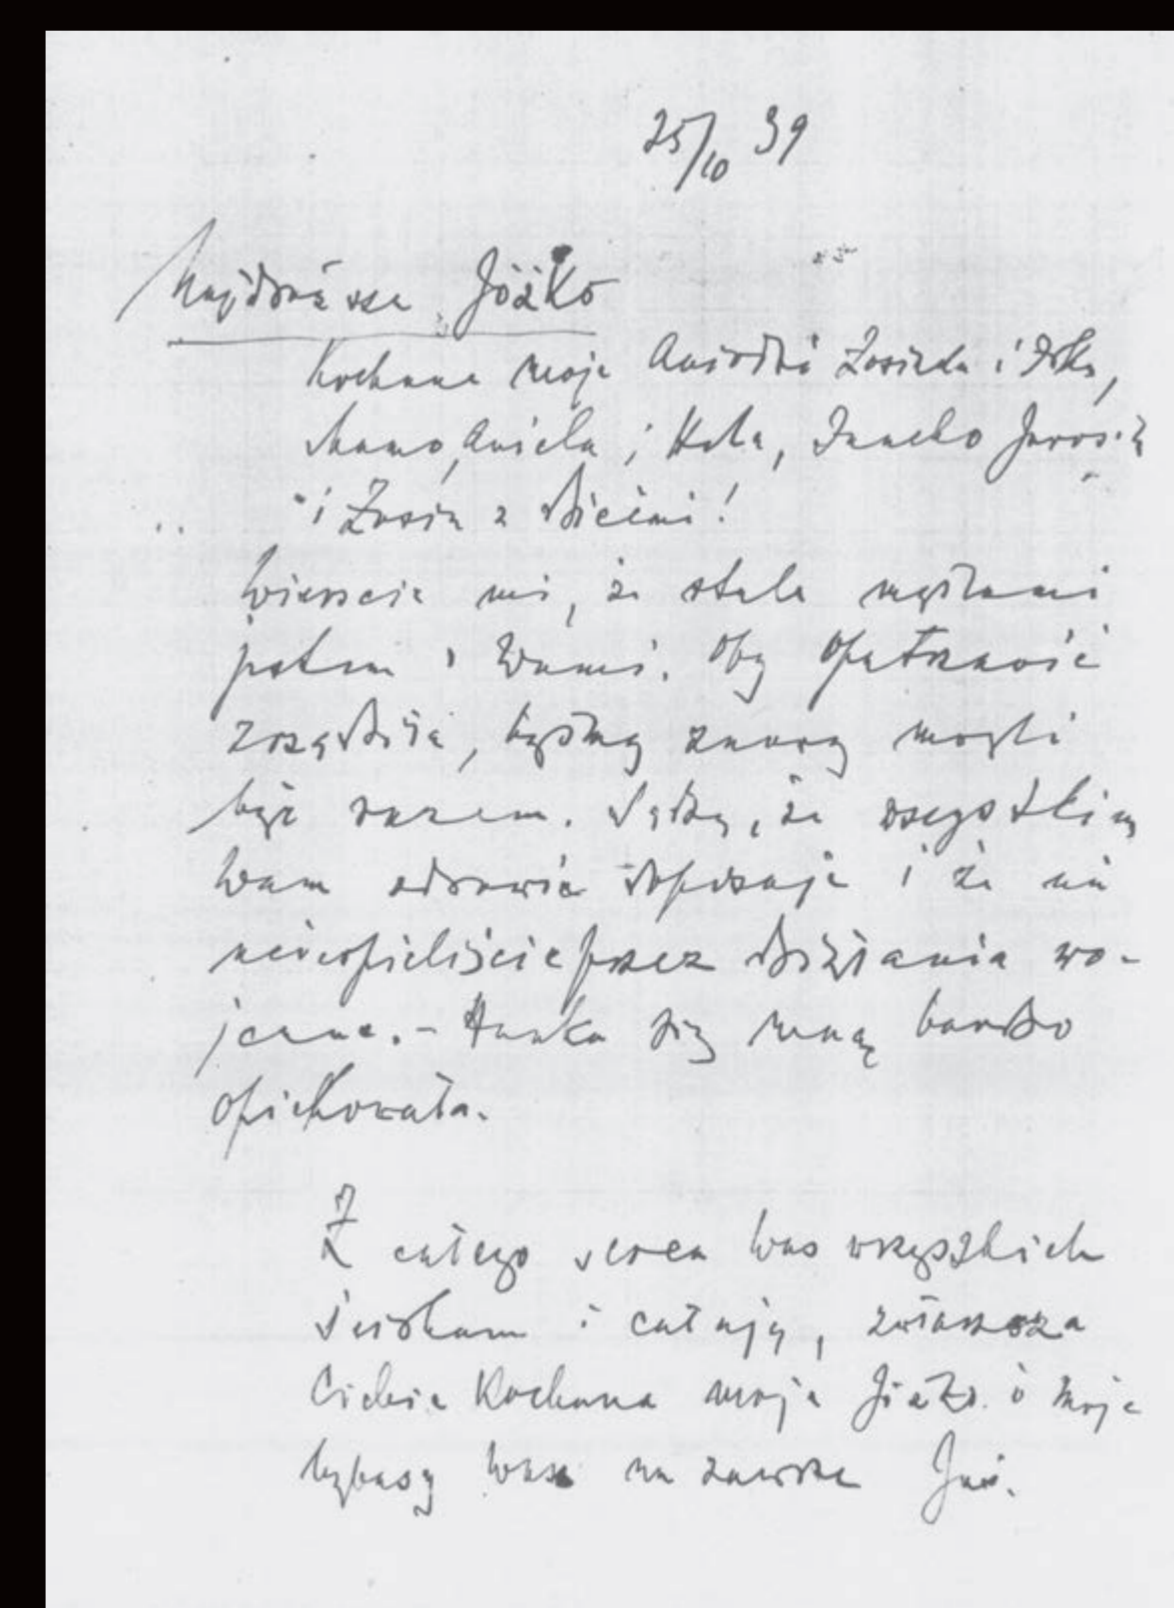 25/10 39
Najdroższa Józko
Kochane moje Aniołki Zosieńka i Irka,
Mamo, Aniela i Hela, Janeko
i Zosia z dziećmi!
Wierzcie mi, że stale myślami
jestem z Wami. Oby Opatrzność
zrządziła, byśmy znowu mogli
być razem. Sądzę, że wszystkim
Wam zdrowie dopisuje i że nie
ucierpieliście przez działania wo-
jenne. - Hanka się mną bardzo
opiekowała.
Z całego serca Was wszystkich
ściskam i całuję, zwłaszcza
Ciebie Kochana moja Józko i moje
bybasy Wasz na zawsze Juś.